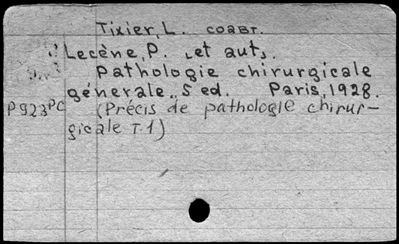 Tixier, L. coaвт.
Lecène, P. et auts.
Pathologie chirurgicale
génerale., 5 ed. Paris, 1928.
P923PC (Précis de pathologie chirur-
gicale T.1)